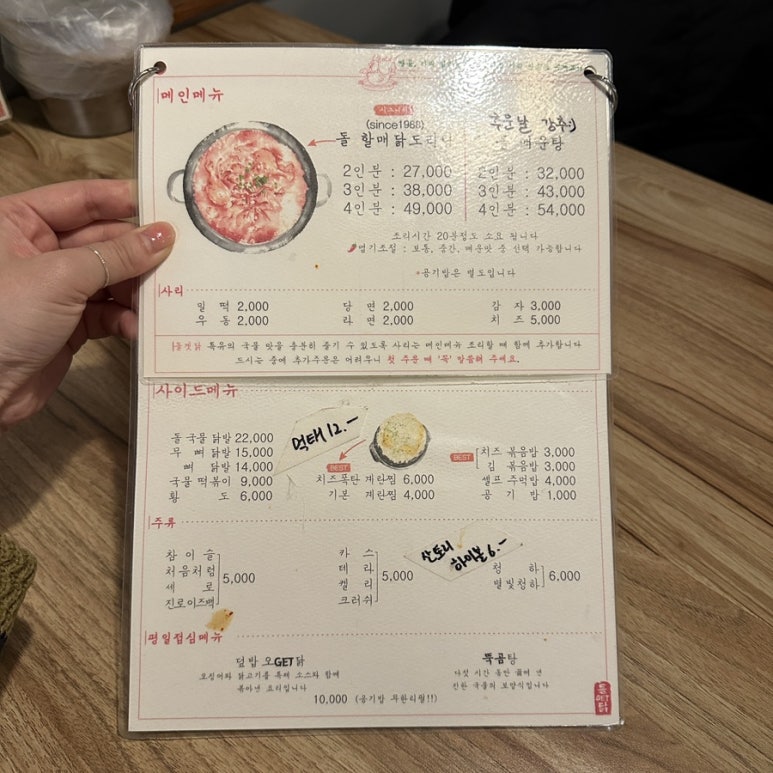 메인메뉴
(since1988)
돌 할매닭도리탕
2인분 : 27,000
3인분 : 38,000
4인분 : 49,000
추운날 강추:)
매운탕
2인분 : 32,000
3인분 : 43,000
4인분 : 54,000
조리시간 20분정도 소요 됩니다
맵기조절 : 보통, 중간, 매운맛 중 선택 가능합니다
*공기밥은 별도입니다
사리
밀 떡 2,000 당 면 2,000 감 자 3,000
우 동 2,000 라 면 2,000 치 즈 5,000
특유의 국물 맛을 충분히 즐기 수 있도록 사리는 메인메뉴 조리할 때 함께 추가합니다
드시는 중에 추가주문은 어려우니 첫 주문 때 '꼭' 말씀해 주세요.
사이드메뉴
돌 국물 닭발 22,000
무 뼈 닭발 15,000
뼈 닭발 14,000
국물 떡볶이 9,000
황 도 6,000
먹태 12.-
BEST
치즈폭탄 계란찜 6,000
기본 계란찜 4,000
BEST
치즈 볶음밥 3,000
김 볶음밥 3,000
셀프 주먹밥 4,000
공 기 밥 1,000
주류
참 이 슬
처음처럼
세 로
진로이즈백
5,000
카 스
테 라
켈 리
크러쉬
5,000
산토리
하이볼 6.-
청 하
별빛청하
6,000
평일점심메뉴
덮밥 오GET닭
오징어와 닭고기를 특제 소스와 함께
볶아낸 요리입니다
뚝곰탕
다섯 시간 동안 고아 낸
진한 국물의 보양식입니다
10,000 (공기밥 무한리필!!)
돌
GET
닭